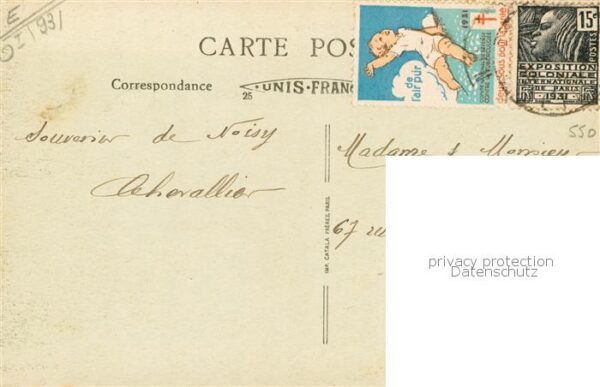 E
1931
CARTE POS
Correspondance
25
UNIS-FRAN
1931
de l'air pur
15c
POSTES
EXPOSITION
COLONIALE
INTERNATIONALE
DE PARIS
1931
550
Souvenir de Noisy
Chevallier
Madame & Monsieur
67
IMP. CATALA FRÈRES, PARIS
privacy protection
Datenschutz